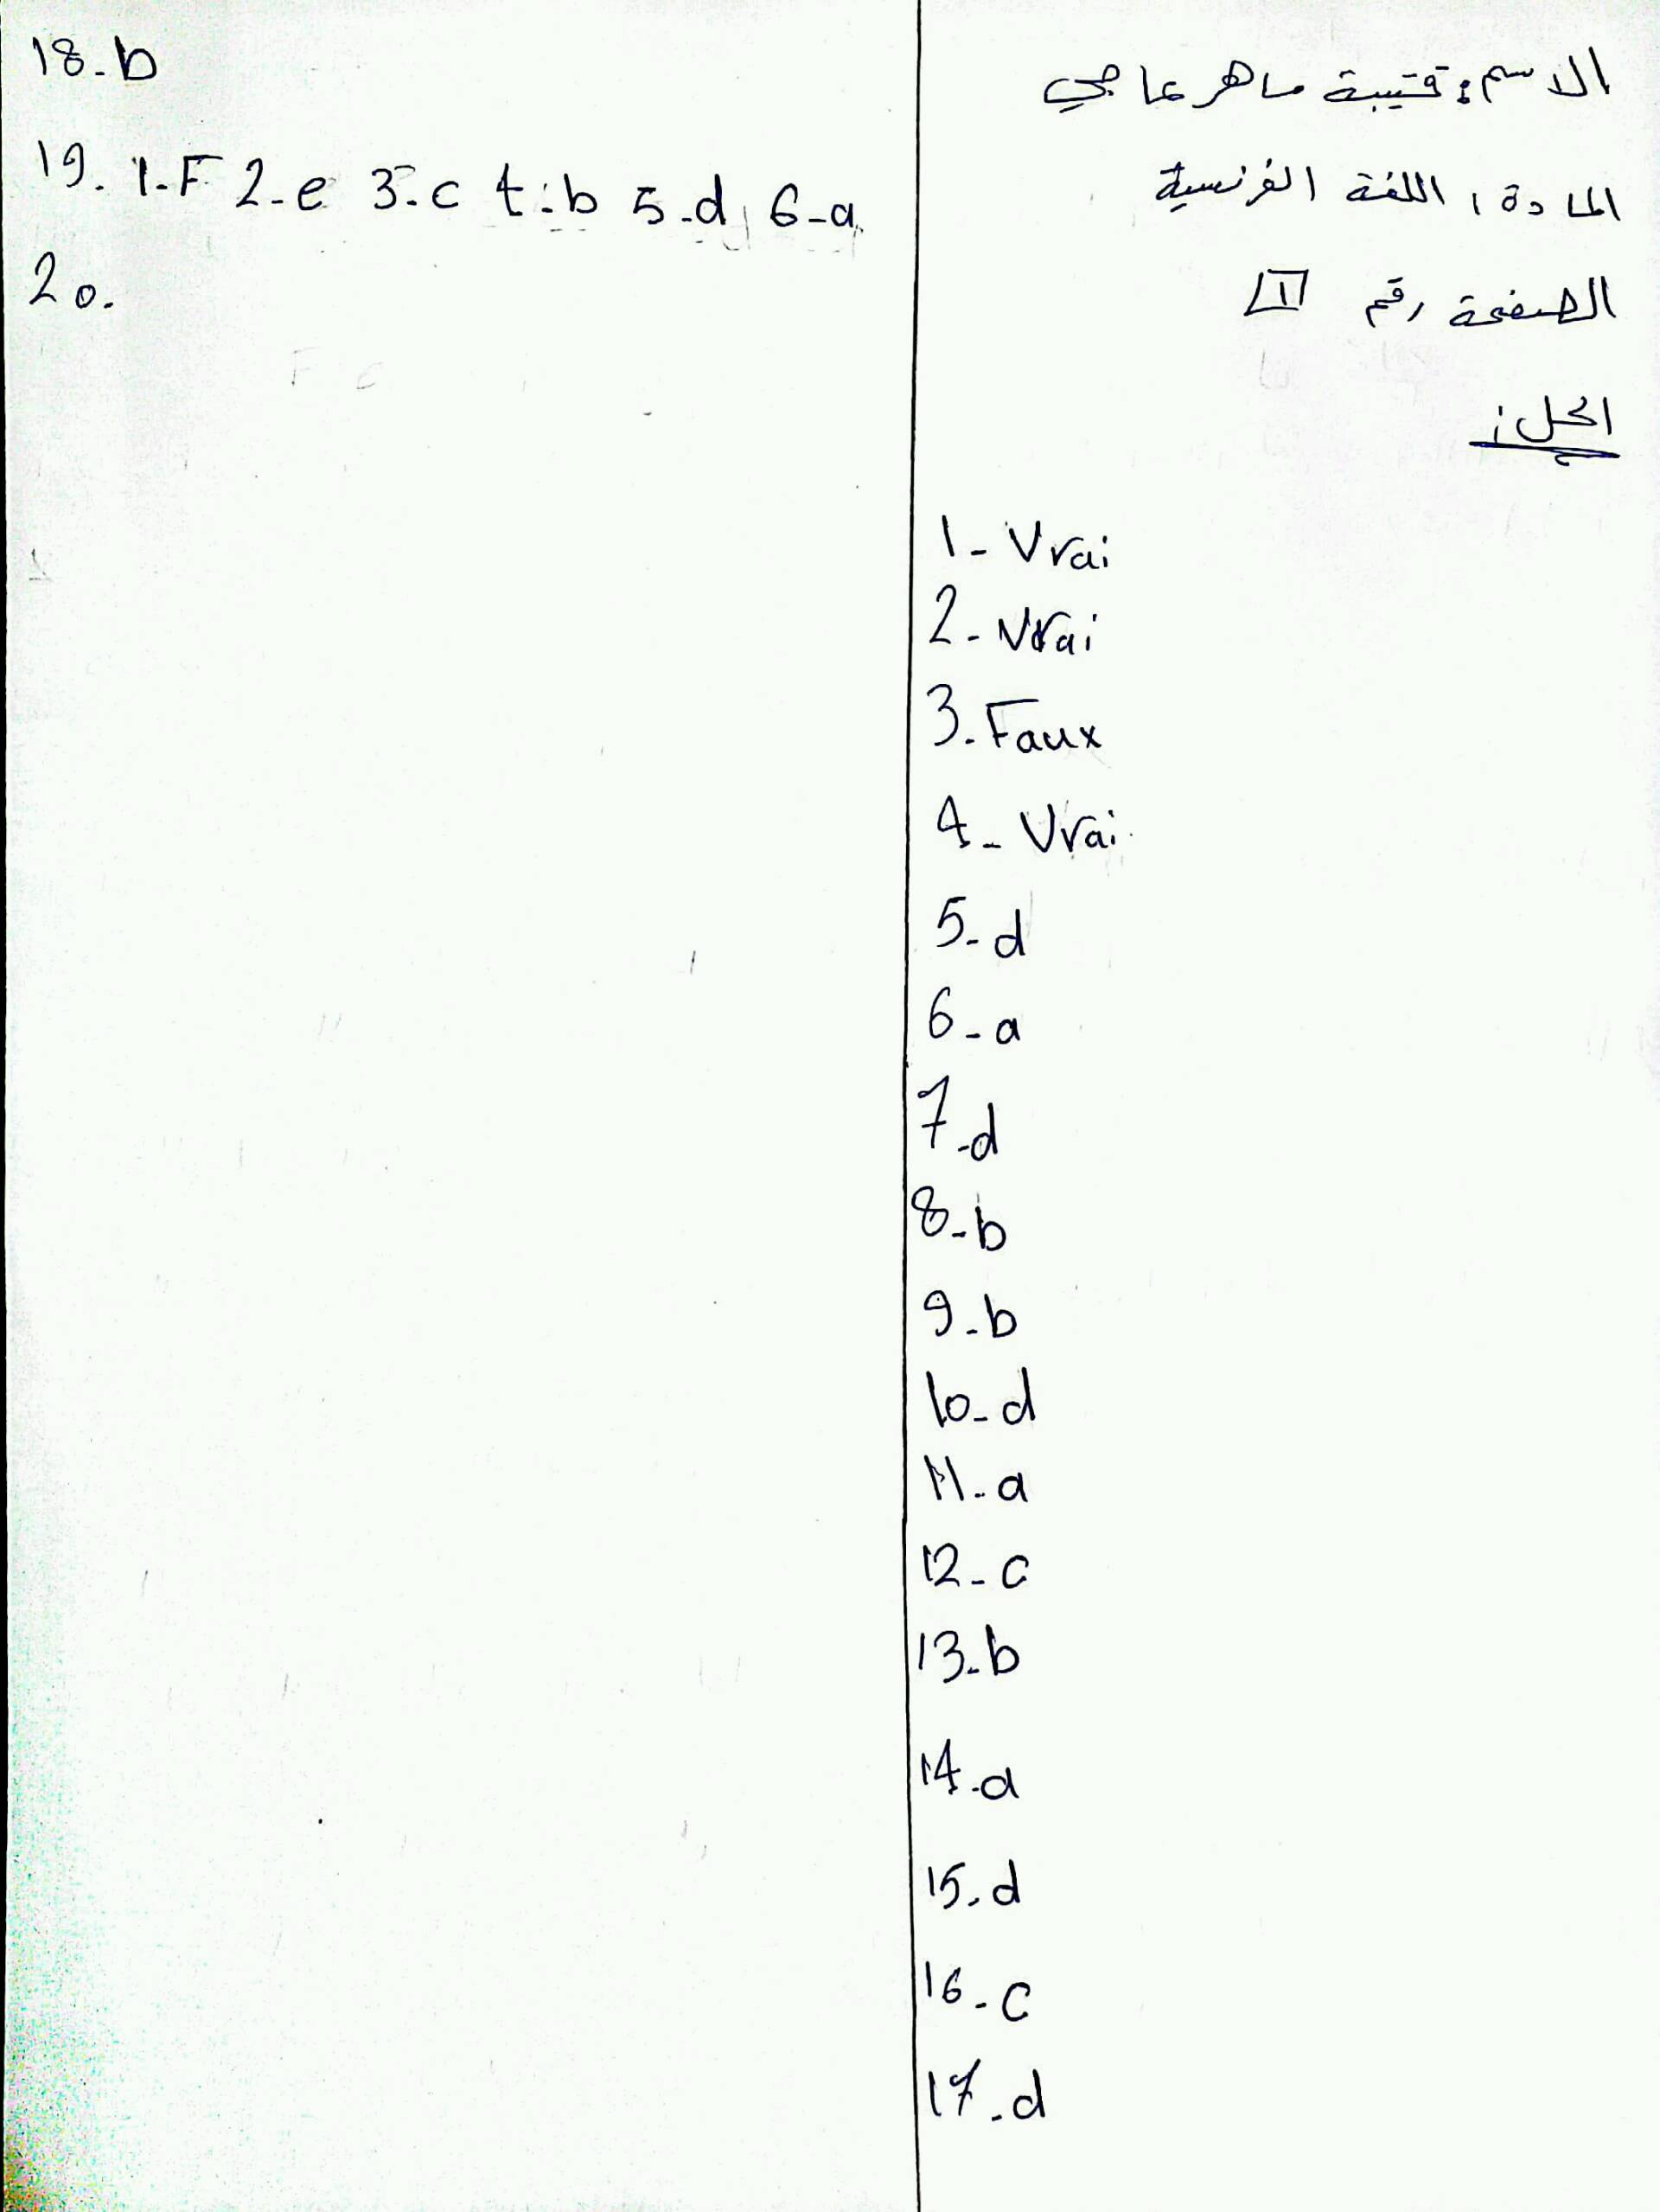 الاسم: قتيبة ماهر عاجي
المادة: اللغة الفرنسية
الصفحة رقم 1
الحل:
1- Vrai
2- Vrai
3. Faux
4- Vrai
5- d
6- a
7-d
8-b
9-b
10-d
11-a
12-c
13-b
14-a
15.d
16-c
17.d
18-b
19. 1-F 2-e 3-c 4-b 5-d 6-a
20.